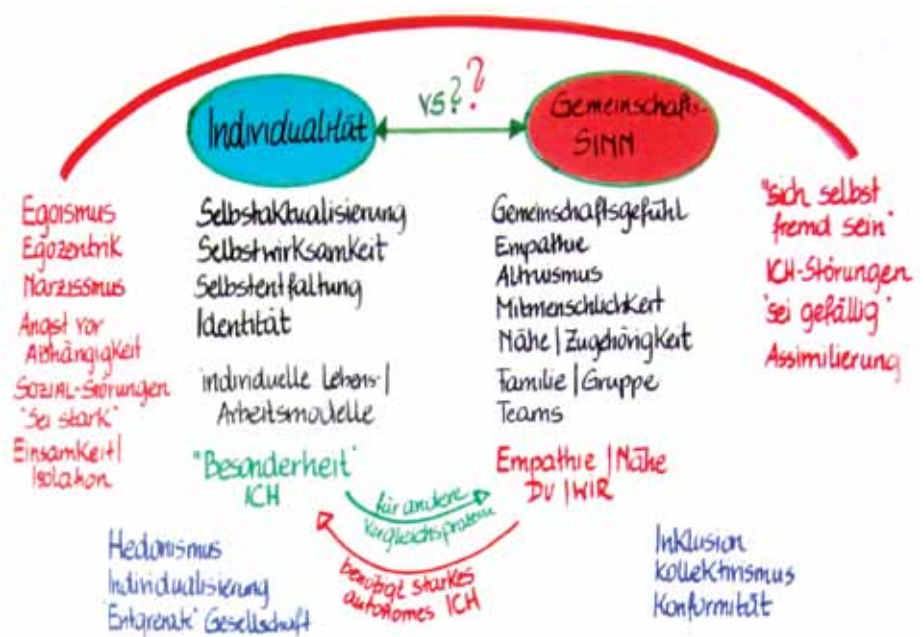 Individualität
vs??
Gemeinschafts-
SINN
Egoismus
Egozentrik
Narzissmus
Angst vor
Abhängigkeit
SOZIAL-Störungen
"Sei stark"
Einsamkeit/
Isolation
Selbstaktualisierung
Selbstwirksamkeit
Selbstentfaltung
Identität
individuelle Lebens-/
Arbeitsmodelle
"Besonderheit"
ICH
Gemeinschaftsgefühl
Empathie
Altruismus
Mitmenschlichkeit
Nähe/Zugehörigkeit
Familie/Gruppe
Teams
Empathie/Nähe
DU/WIR
"sich selbst
fremd sein"
ICH-Störungen
"sei gefällig"
Assimilierung
für andere
benötigt starkes
autonomes ICH
Hedonismus
Individualisierung
"Entgrenzte" Gesellschaft
Inklusion
Kollektivismus
Konformität